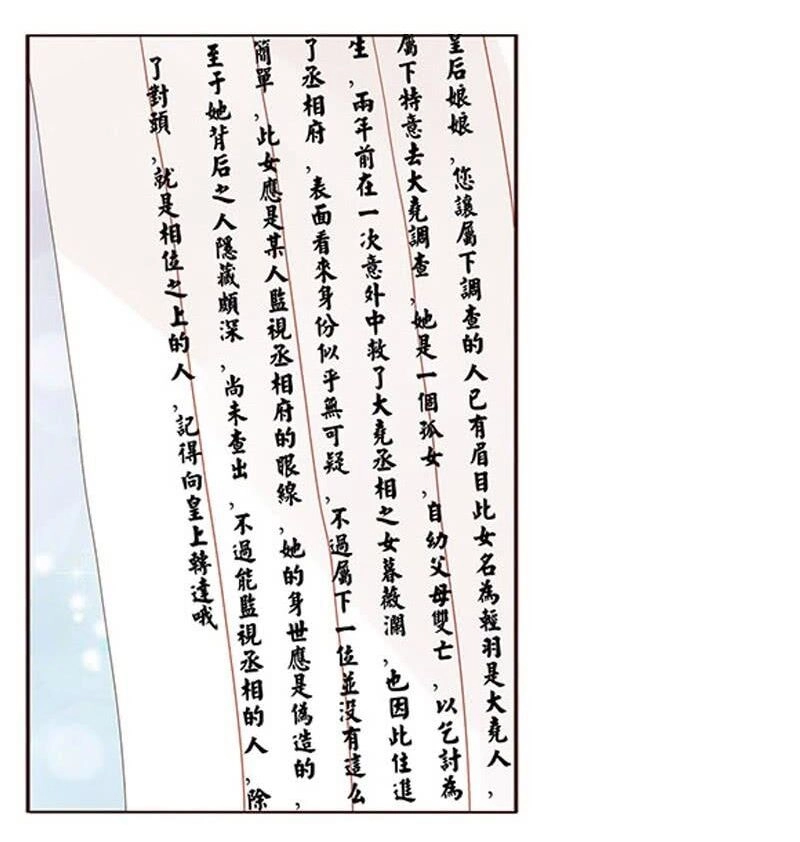 皇后娘娘，您讓屬下調查的人已有眉目此女名為輕羽是大堯人，
屬下特意去大堯調查，她是一個孤女，自幼父母雙亡，以乞討為
生，兩年前在一次意外中救了大堯丞相之女暮薇瀾，也因此住進
了丞相府，表面看來身份似乎無可疑，不過屬下一位並沒有這么
簡單，此女應是某人監視丞相府的眼線，她的身世應是偽造的，
至于她背后之人隱藏頗深，尚未查出，不過能監視丞相的人，除
了對頭，就是相位之上的人，記得向皇上轉達哦